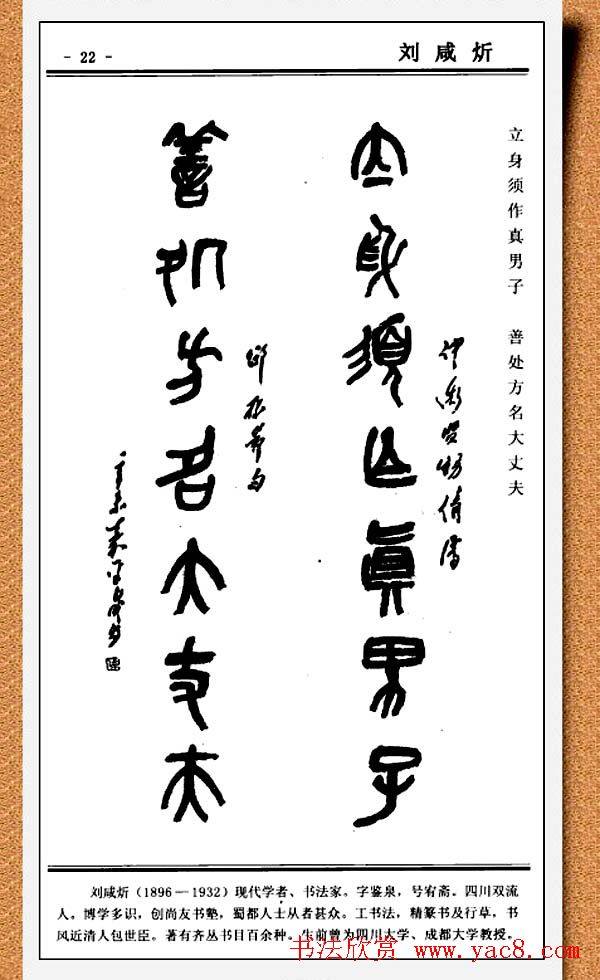 - 22 -
刘咸炘
立身须作真男子 善处方名大丈夫
立身須作真男子
善処方名大丈夫
刘咸炘（1896—1932）现代学者、书法家。字鉴泉，号宥斋。四川双流
人。博学多识，创尚友书塾，蜀都人士从者甚众。工书法，精篆书及行草，书
风近清人包世臣。著有齐丛书目百余种。生前曾为四川大学、成都大学教授。
书法欣赏 www.yac8.com